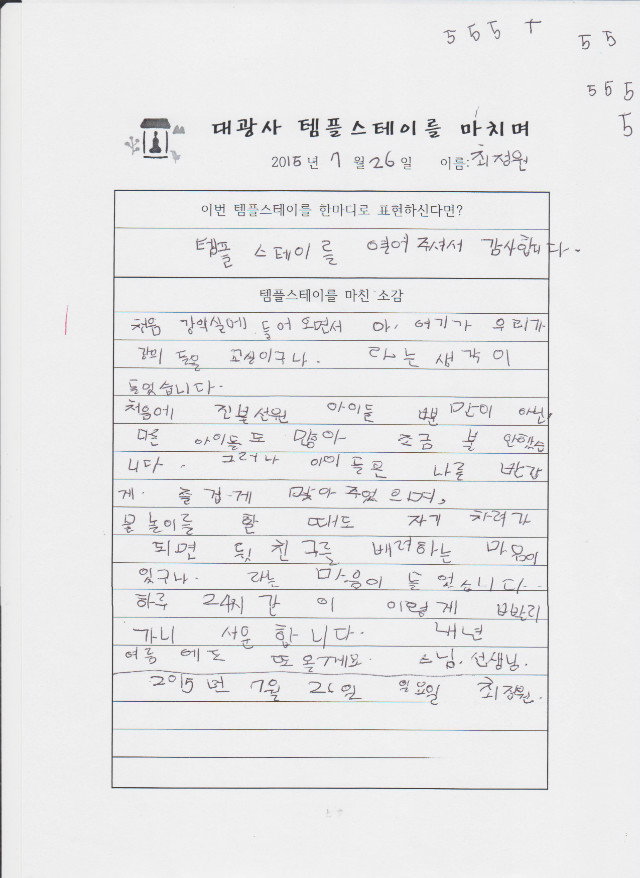 5 5 5 +
5 5
5 5 5
5
대광사 템플스테이를 마치며
2015년 7월 26일 이름: 최정원
이번 템플스테이를 한마디로 표현하신다면?
템플 스테이를 열어 주셔서 감사합니다.
템플스테이를 마친 소감
처음 강의실에 들어 오면서 아, 여기가 우리가
강의 들을 교실이구나. 라는 생각이
들었습니다.
처음에 진불선원 아이들 뿐만이 아닌,
다른 아이들도 많아 조금 불안했습
니다. 그러나 아이들은 나를 반갑
게. 즐겁게 맞아 주었으며,
물놀이를 할 때도 자기 차례가
되면 뒷 친구를 배려하는 마음이
있구나. 라는 마음이 들었습니다.
하루 24시간이 이렇게 빨리
가니 서운합니다. 내년
여름에도 또 올게요. 스님, 선생님.
2015년 7월 26일 일요일 최정원.